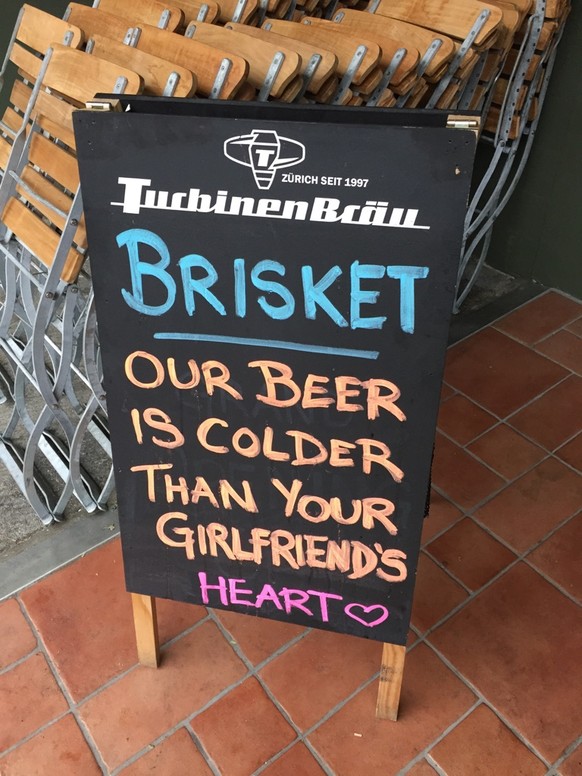 T
ZÜRICH SEIT 1997
TurbinenBräu
BRISKET
OUR BEER
IS COLDER
THAN YOUR
GIRLFRIEND'S
HEART